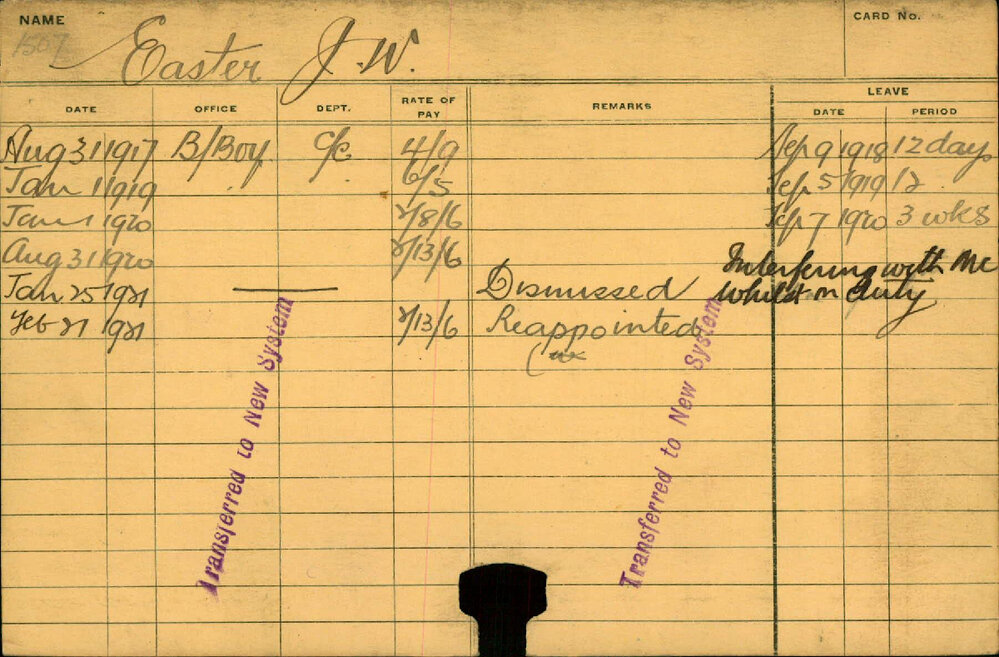 NAME
CARD No.
1567
Easter J. W.
DATE OFFICE DEPT. RATE OF PAY REMARKS LEAVE
DATE PERIOD
Aug 31 1917 B/Boy C/c 4/9 Sep 9 1918 12 days
Jan 1 1919 6/5 Sep 5 1919 12
Jan 1 1920 7/8/6 Sep 7 1920 3 wks
Aug 31 1920 7/13/6
Jan 25 1921 Dismissed Interfering with Mc
whilst on duty
Feb 21 1921 7/13/6 Reappointed
Transferred to New System
Transferred to New System